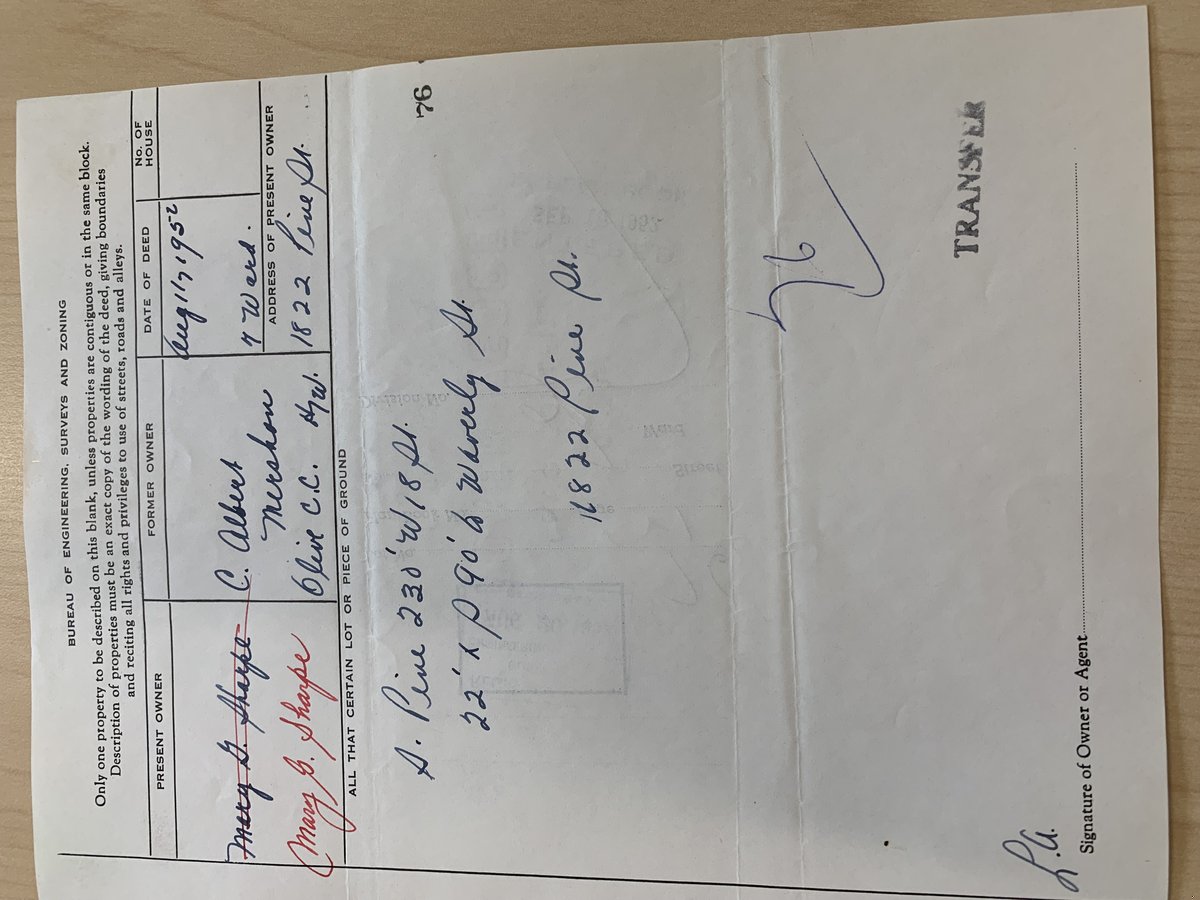 BUREAU OF ENGINEERING, SURVEYS AND ZONING
Only one property to be described on this blank, unless properties are contiguous or in the same block.
Description of properties must be an exact copy of the wording of the deed, giving boundaries
and reciting all rights and privileges to use of streets, roads and alleys.
PRESENT OWNER
FORMER OWNER
DATE OF DEED
No. OF HOUSE
Mary G. Sharpe
C. Albert
Aug 17 1952
Mershon
7 Ward.
ADDRESS OF PRESENT OWNER
Mary G. Sharpe
Olive C.C. H/W.
1822 Pine St.
ALL THAT CERTAIN LOT OR PIECE OF GROUND
76
S. Pine 230' W 18 St.
22' x 90' to Waverly St.
1822 Pine St.
76
TRANSFER
L.A.
Signature of Owner or Agent